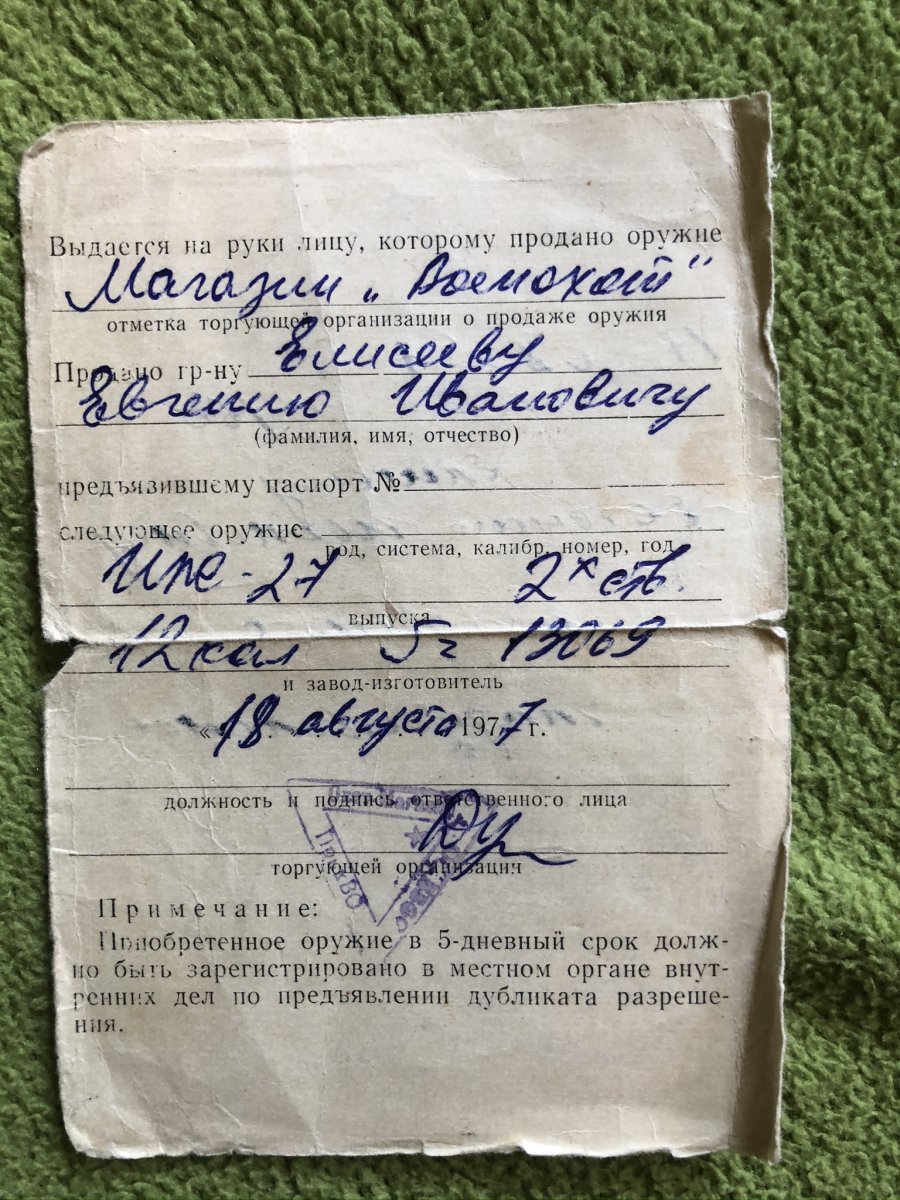 Выдается на руки лицу, которому продано оружие
Магазин „Военохот"
отметка торгующей организации о продаже оружия
Продано гр-ну Елисееву
Евгению Ивановичу
(фамилия, имя, отчество)
предъязившему паспорт №
следующее оружие
род, система, калибр, номер, год
ИЖ-27 2х ств.
выпуска
12 кал 13069
и завод-изготовитель
«18 августа 1977 г.
должность и подпись ответственного лица
торгующей организации
ПрикВО
Примечание:
Приобретенное оружие в 5-дневный срок долж-
но быть зарегистрировано в местном органе внут-
ренних дел по предъявлении дубликата разреше-
ния.